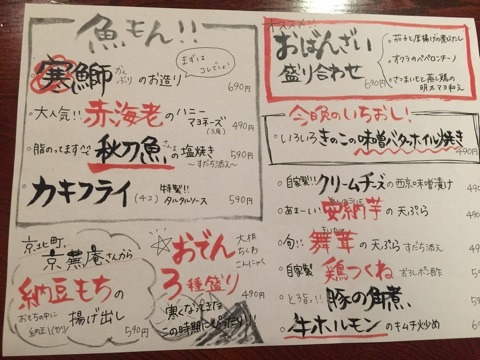 魚もん!!
まずは
コレでしょ!
寒鰤のお造り 690円
かんぶり
大人気!! 赤海老のハニー
マヨネーズ
(3尾) 490円
脂のってます 秋刀魚の塩焼き 590円
さんま
〜すだち添え〜
カキフライ (4コ) 特製!!
タルタルソース 590円
京北町、
京蕪庵さんから
納豆もちの
揚げ出し
おもちの中に
590円
おでん
3種盛り
大根
ちくわ
こんにゃく
490円
寒くなったら
この時期にぴったり
オススメ!!
おばんざい
盛り合わせ
690円
・茄子と厚揚げの煮びたし
・オクラのペペロンチーノ
・さつまいもと蒸し鶏の
明太マヨ和え
今晩のいちおし!
いろいろきのこの味噌バターホイル焼き
490円
自家製 クリームチーズの西京味噌漬け
あまーい 安納芋の天ぷら
旬!! 舞茸の天ぷら すだち添え
自家製 鶏つくね おろしポン酢
とろとろ!! 豚の角煮
牛ホルモンのキムチ炒め